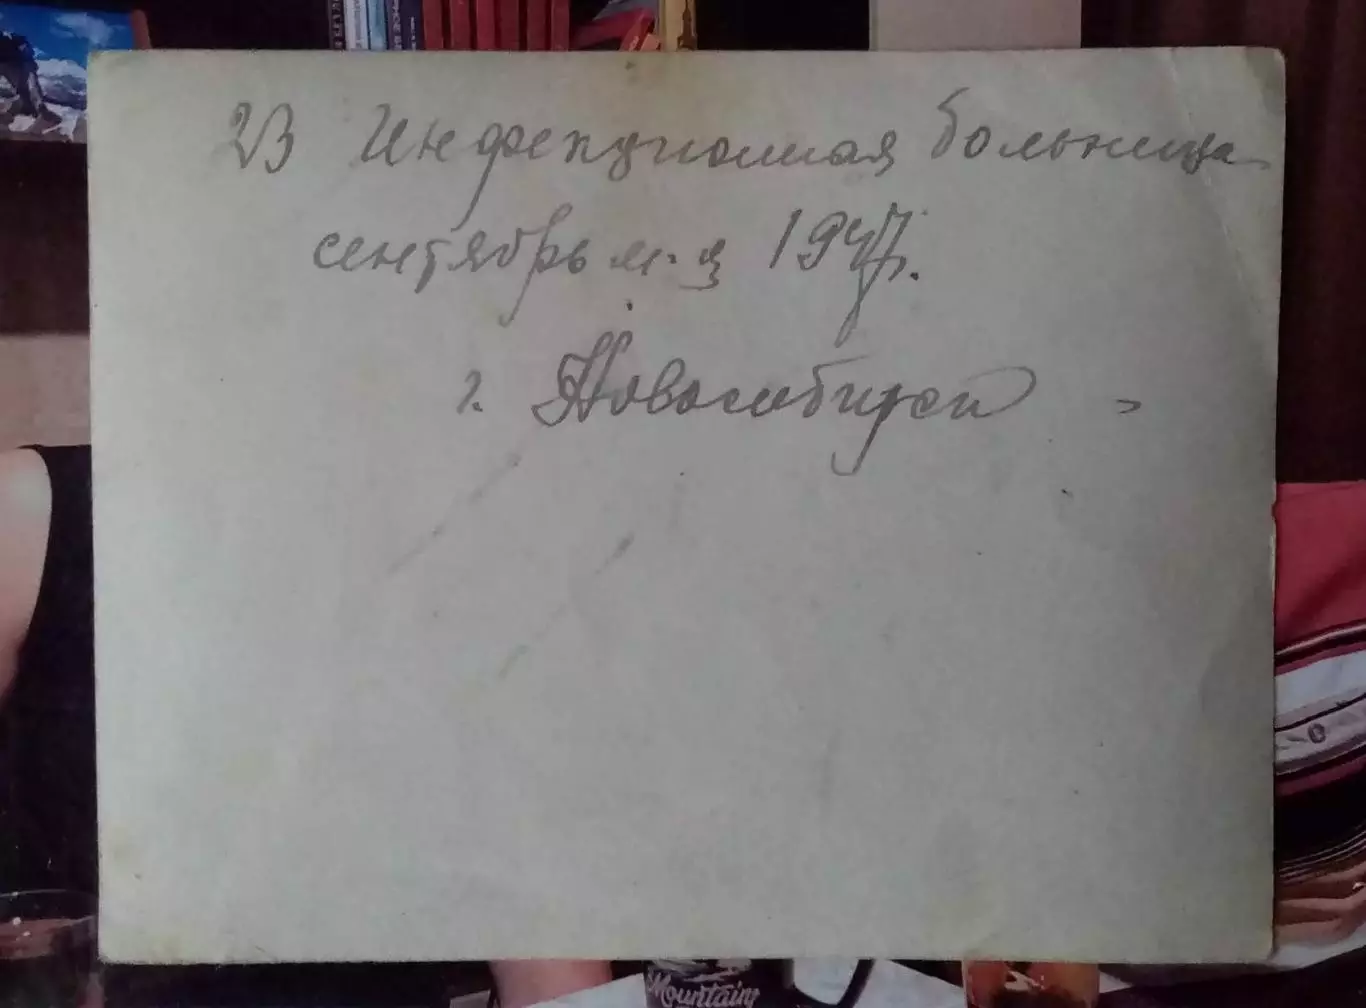 23 Инфекционная больница
сентябрь м-ц 1947.
г. Новосибирск
Mountain